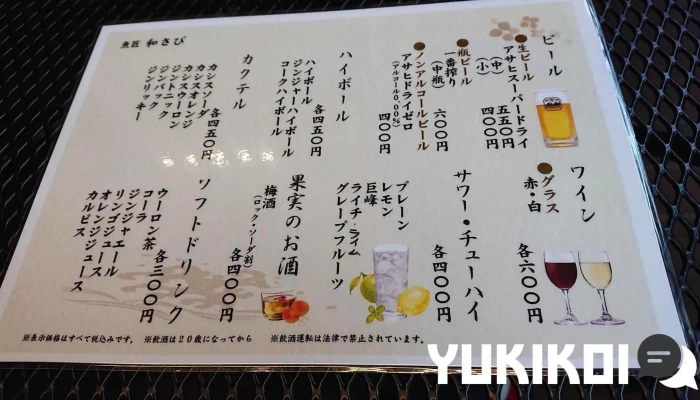 魚匠 和さび
ビール
●生ビール
アサヒスーパードライ
(中) 五五〇円
(小) 四〇〇円
●瓶ビール
一番搾り
(中瓶) 六〇〇円
●ノンアルコールビール
アサヒドライゼロ
(アルコール0.00%) 四〇〇円
ハイボール
各四五〇円
ハイボール
ジンジャーハイボール
コークハイボール
カクテル
各四五〇円
カシスソーダ
カシスオレンジ
カシスウーロン
ジントニック
ジンバック
ジンリッキー
ワイン
●グラス
赤・白
各六〇〇円
サワー・チューハイ
各四〇〇円
プレーン
レモン
巨峰
ライチ・ライム
グレープフルーツ
果実のお酒
梅酒
(ロック・ソーダ割)
各四〇〇円
ソフトドリンク
各三〇〇円
ウーロン茶
コーラ
ジンジャエール
リンゴジュース
オレンジジュース
カルピス
※表示価格はすべて税込みです。 ※飲酒は20歳になってから ※飲酒運転は法律で禁止されています。
YUKIKOI